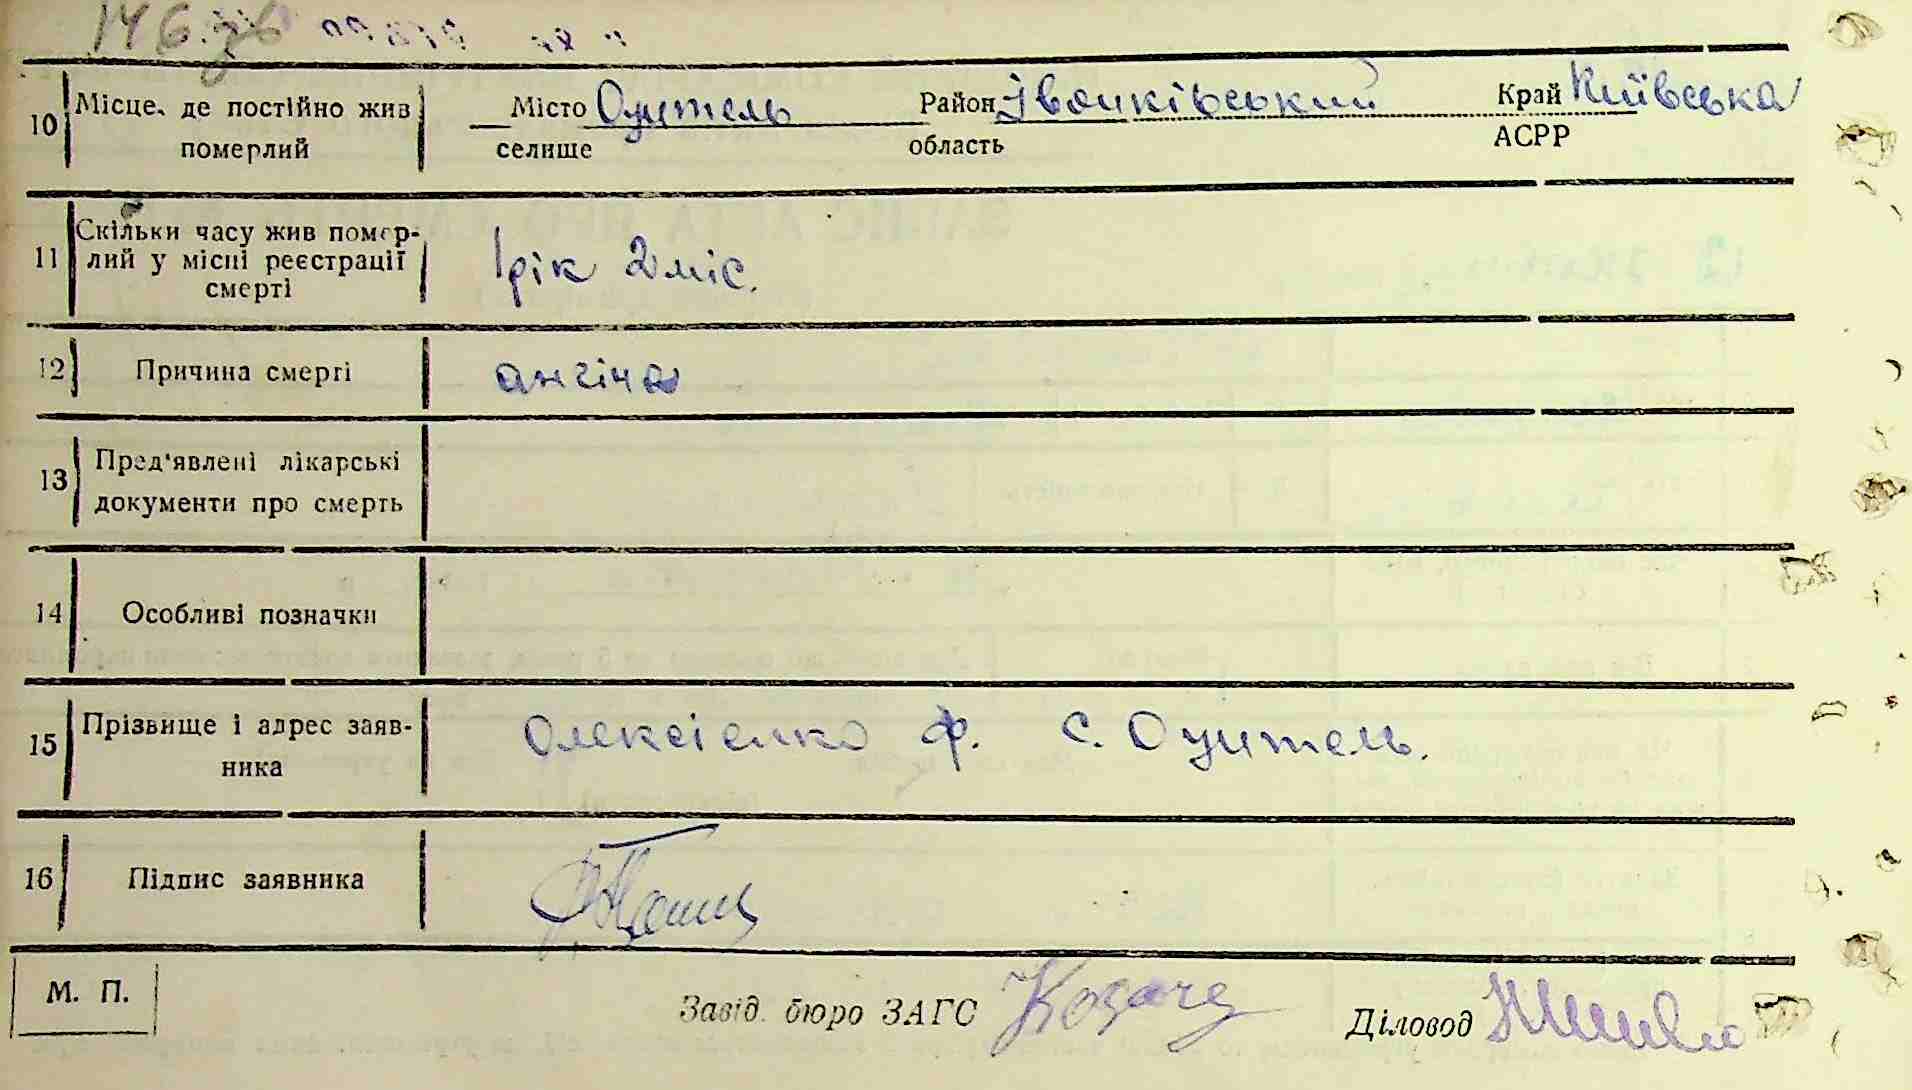 146 зв
10 Місце, де постійно жив Місто Оцитель Район Іванківський Край Київська
померлий селище область АСРР
11 Скільки часу жив помер-
лий у місці реєстрації 1 рік 2 міс.
смерті
12 Причина смерті ангіна
13 Пред'явлені лікарські
документи про смерть
14 Особливі позначки
15 Прізвище і адрес заяв- Олексієнко Ф. с. Оцитель.
ника
16 Підпис заявника
М. П. Завід. бюро ЗАГС Діловод